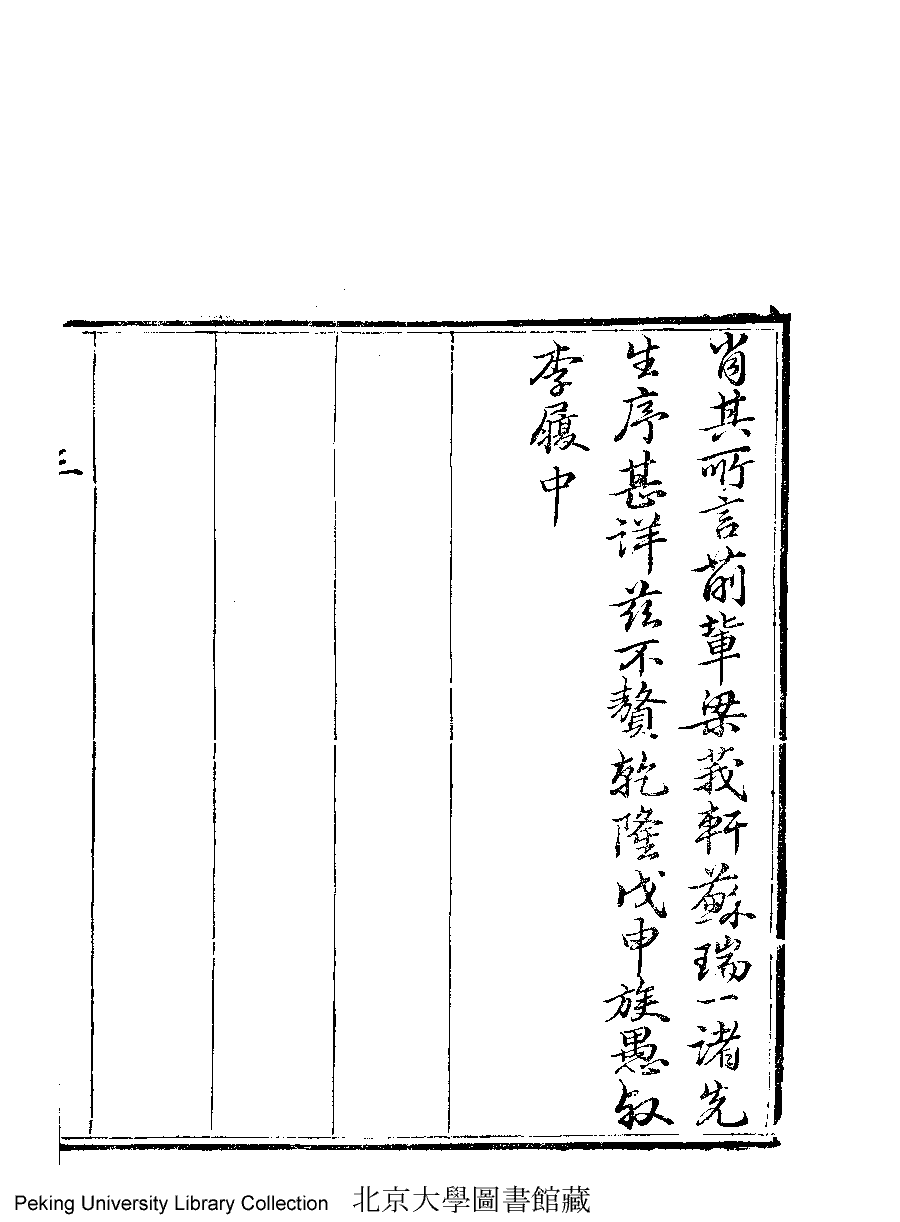 肖其所言前輩梁莪軒蘇瑞一諸先
生序甚詳茲不贅乾隆戊申族愚叔
李履中
三
Peking University Library Collection 北京大學圖書館藏